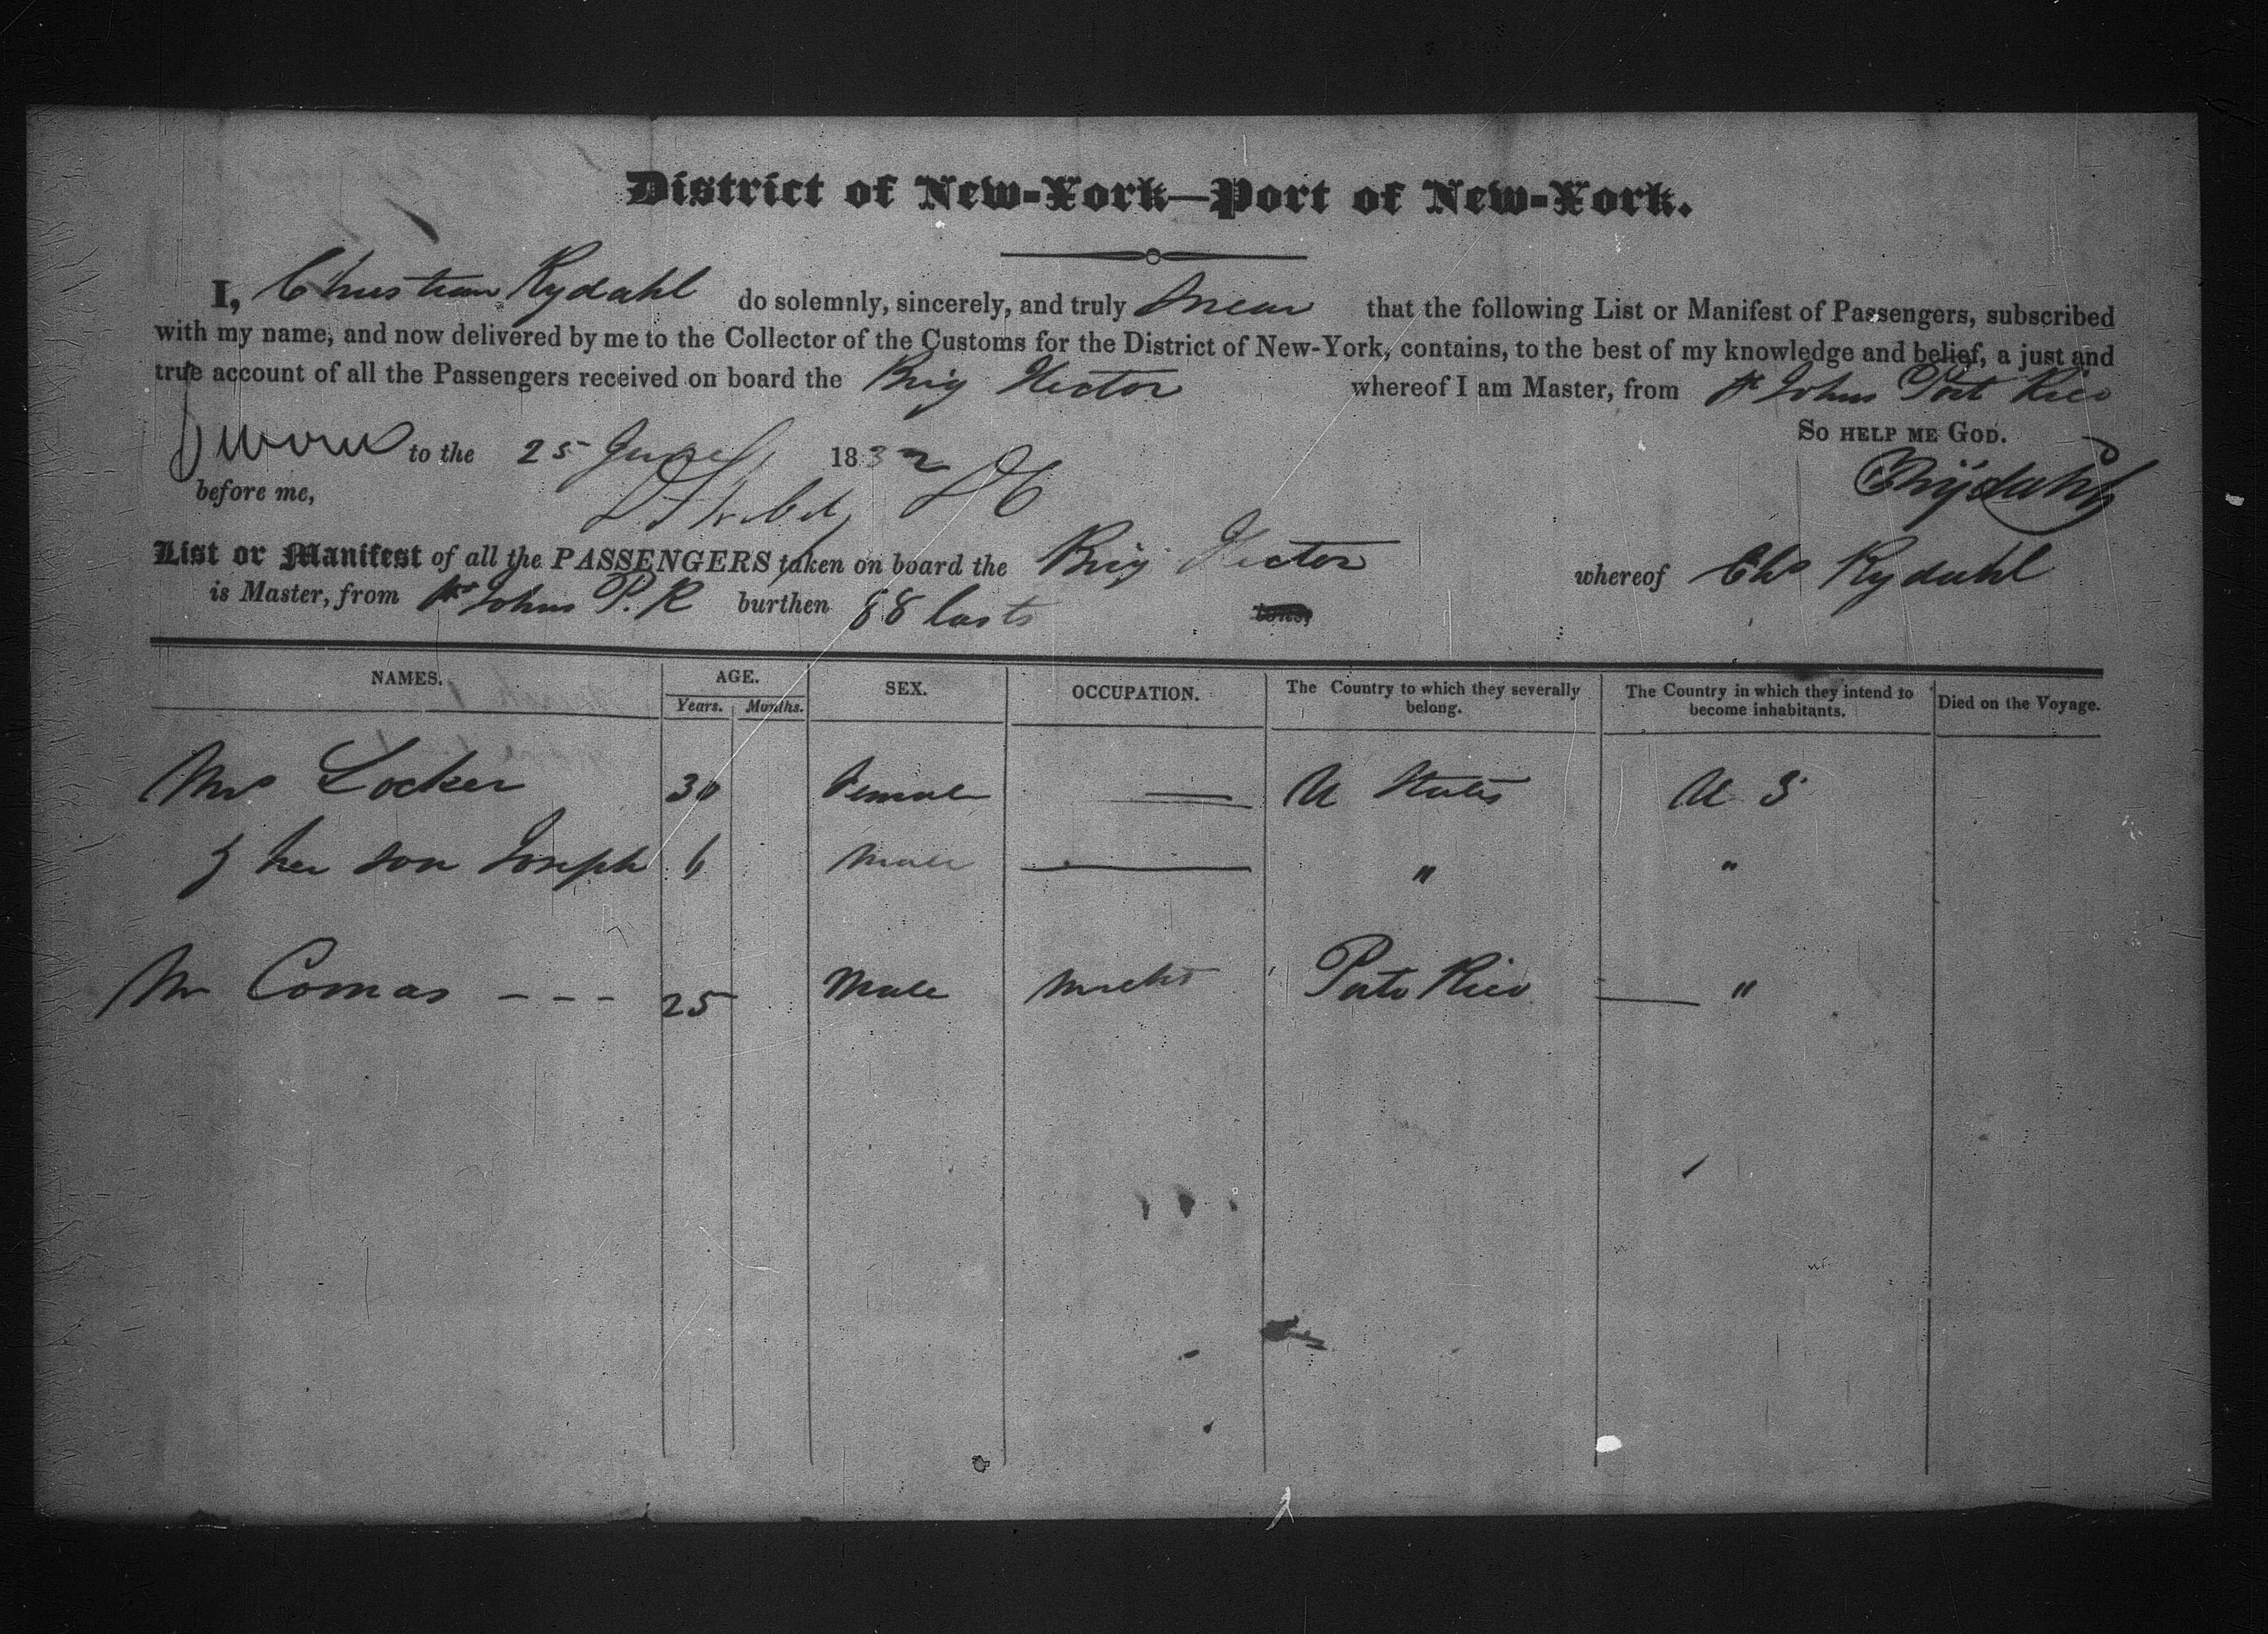 District of New-York—Port of New-York.
I, Christian Rydahl do solemnly, sincerely, and truly swear that the following List or Manifest of Passengers, subscribed
with my name, and now delivered by me to the Collector of the Customs for the District of New-York, contains, to the best of my knowledge and belief, a just and
true account of all the Passengers received on board the Brig Hector whereof I am Master, from St Johns Port Rico
So help me God.
Sworn to the 25 June 1832
before me,
CRydahl
List or Manifest of all the PASSENGERS taken on board the Brig Hector whereof Chs Rydahl
is Master, from St Johns P. R burthen 88 lasts tons,
NAMES. AGE. SEX. OCCUPATION. The Country to which they severally belong. The Country in which they intend to become inhabitants. Died on the Voyage.
Years. Months.
Mrs Locker 30 Female — U States U S
& her son Joseph 6 Male — " "
Mr Comas - - - 25 Male Mercht Porto Rico — "